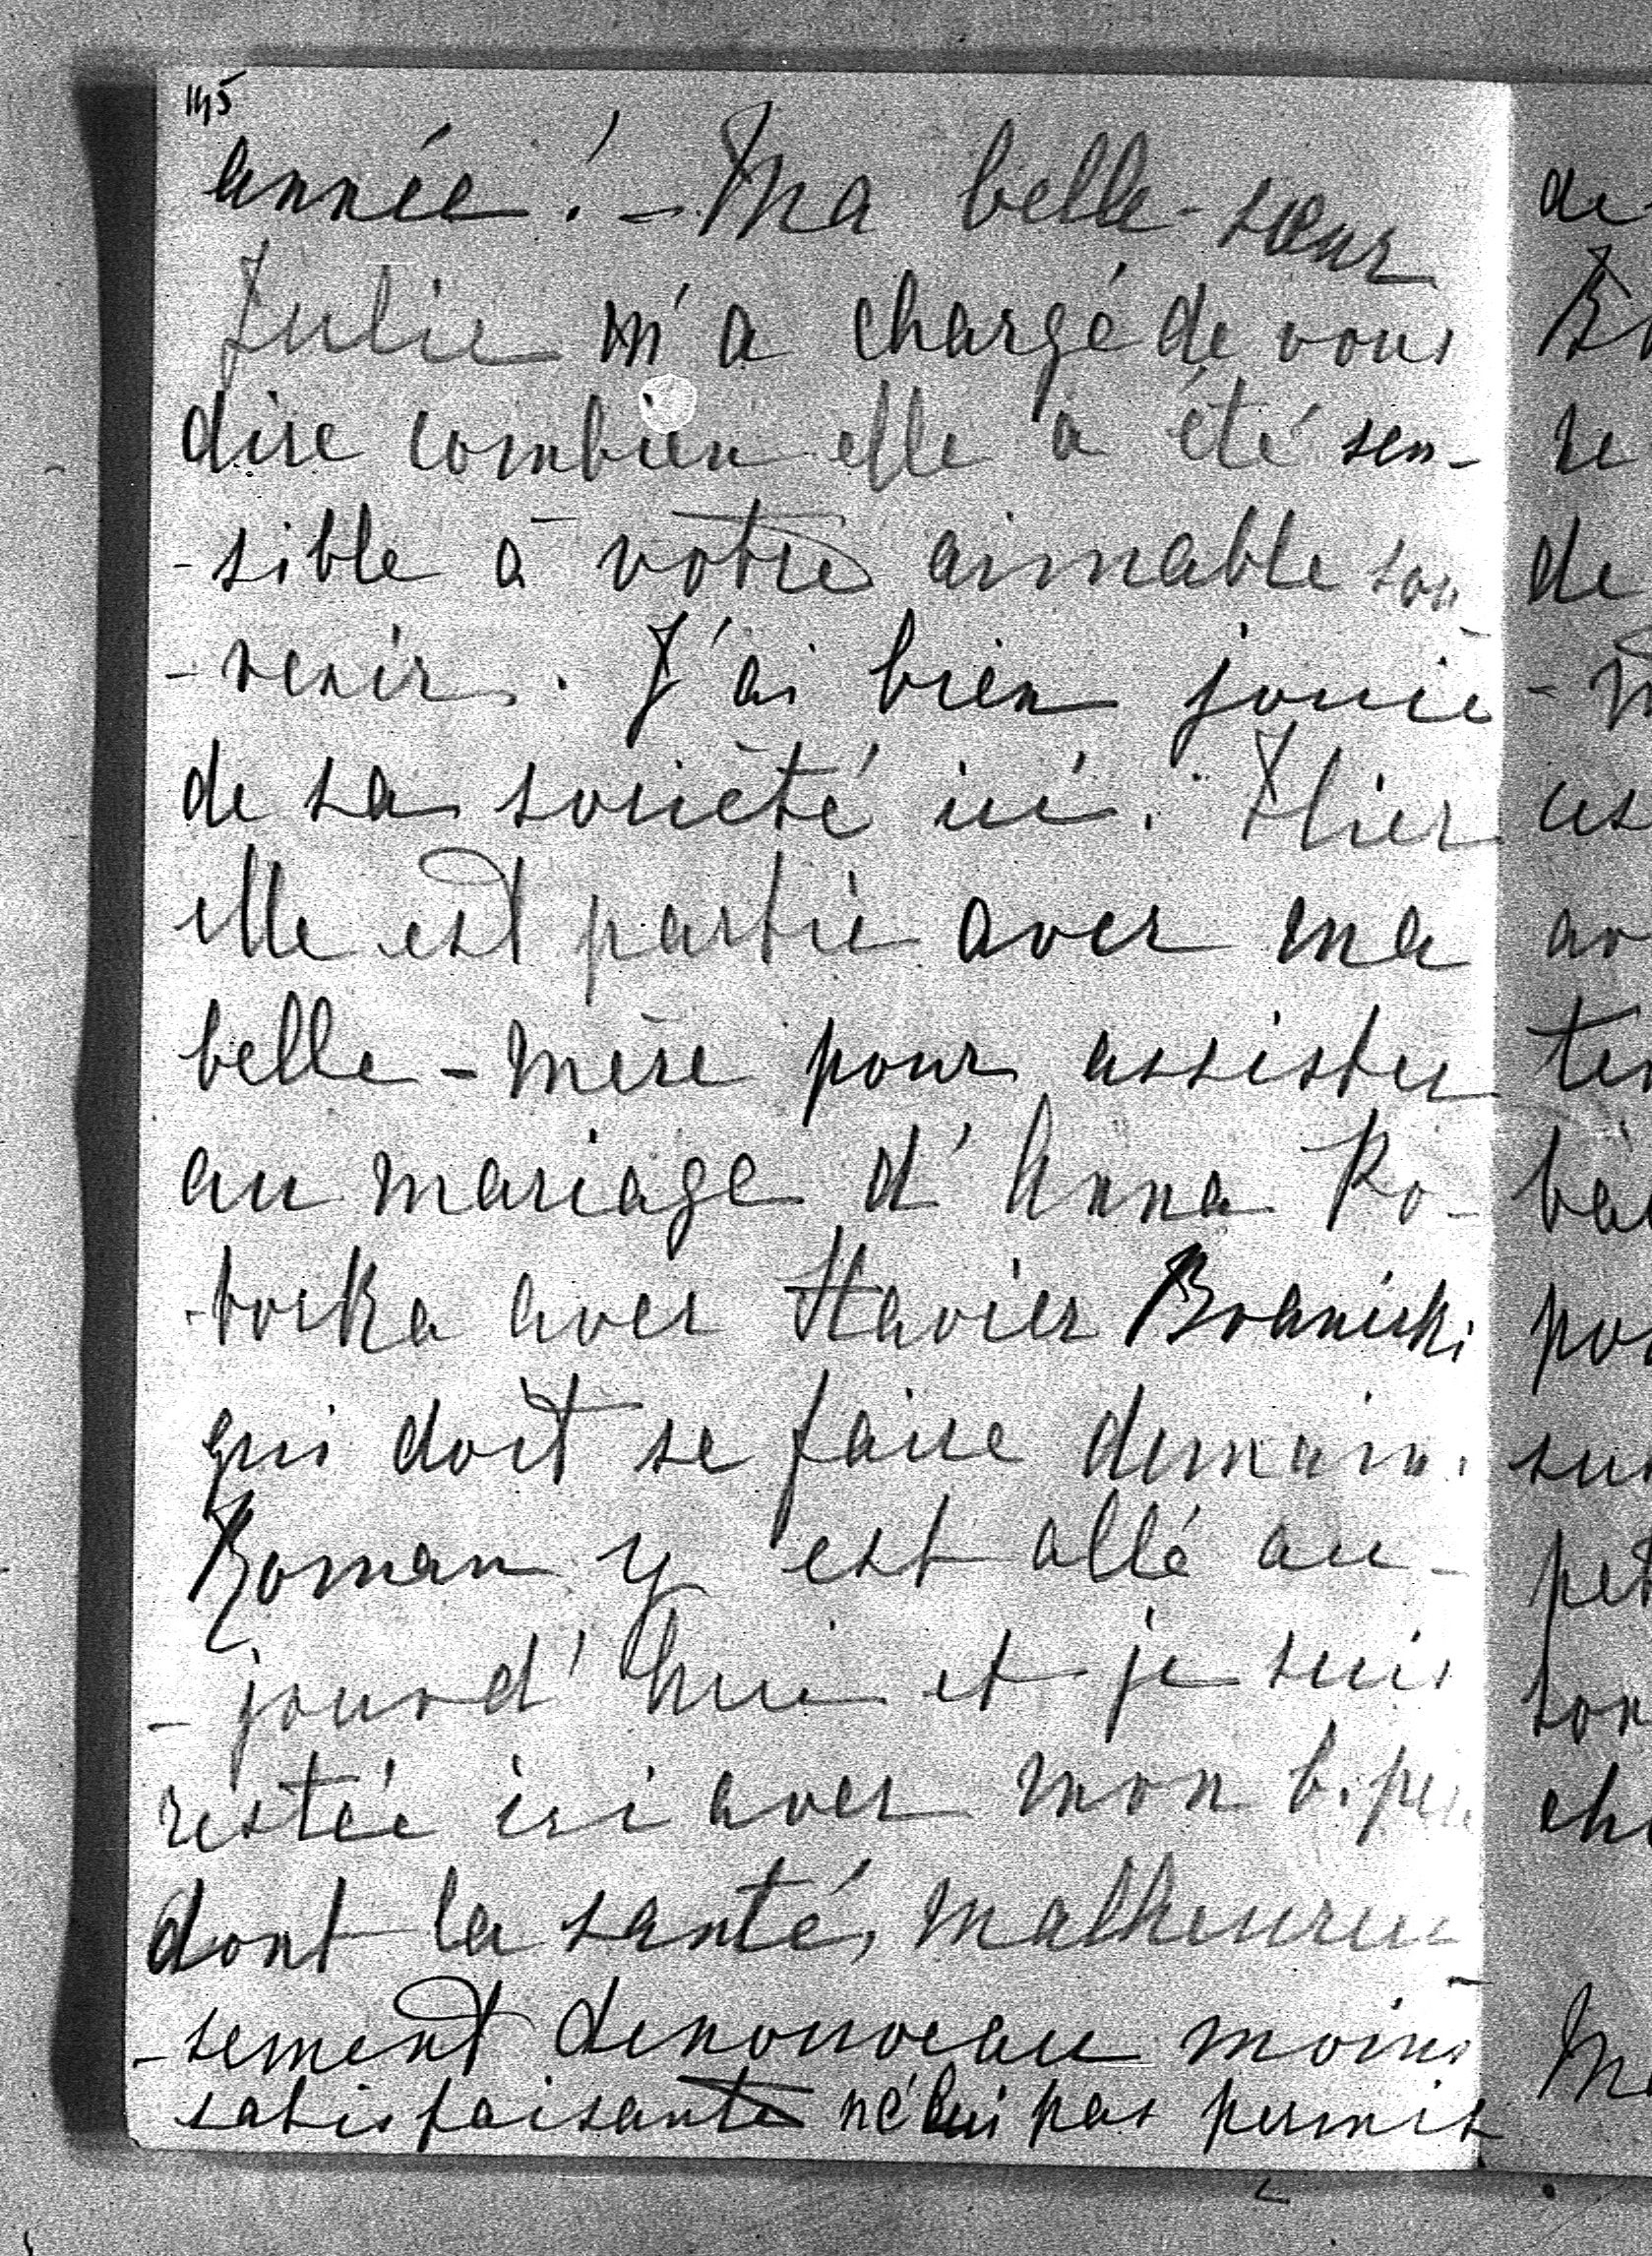 145
année! - Ma belle-sœur
Julie m'a chargé de vous
dire combien elle a été sen-
-sible à votre aimable sou
-venir. J'ai bien jouie
de sa société ici. Hier
elle est partie avec ma
belle-mère pour assister
au mariage d'Anna Po-
-tocka avec Xavier Branicki
qui doit se faire demain.
Roman y est allé au-
-jourd'hui et je suis
restée ici avec mon b. père
dont la santé, malheureu
-sement denouveau moins
satisfaisante ne lui pas permis
de
re
de
ces
av
ter
pou
sur
pet
son
che